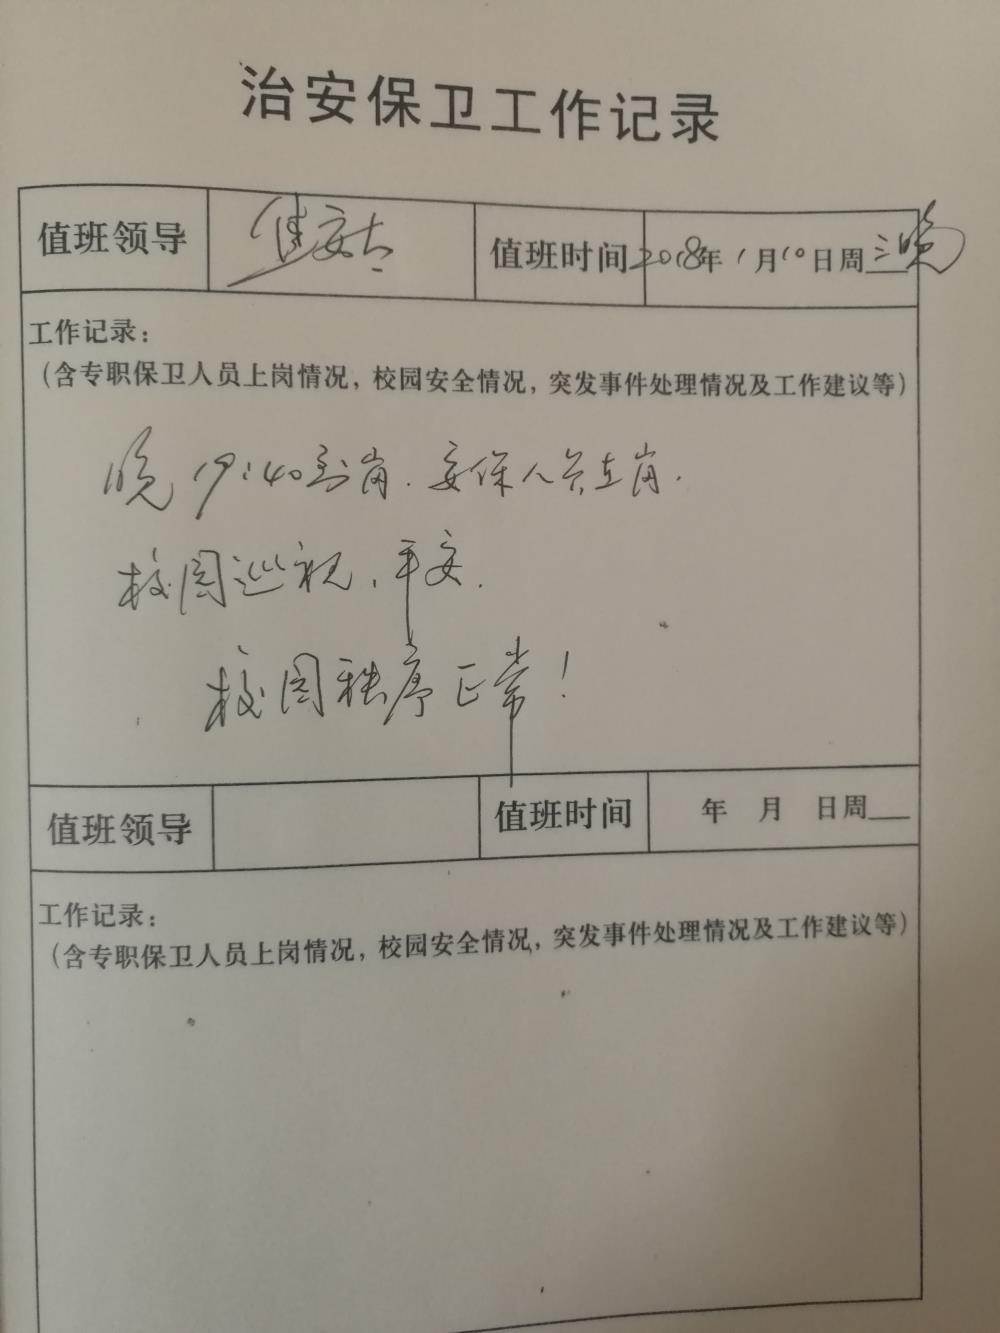 治安保卫工作记录
值班领导 值班时间 2018年1月10日周三晚
工作记录：
（含专职保卫人员上岗情况，校园安全情况，突发事件处理情况及工作建议等）
晚19:40到岗.安保人员在岗.
校园巡视、平安.
校园秩序正常！
值班领导 值班时间 年 月 日周
工作记录：
（含专职保卫人员上岗情况，校园安全情况，突发事件处理情况及工作建议等）